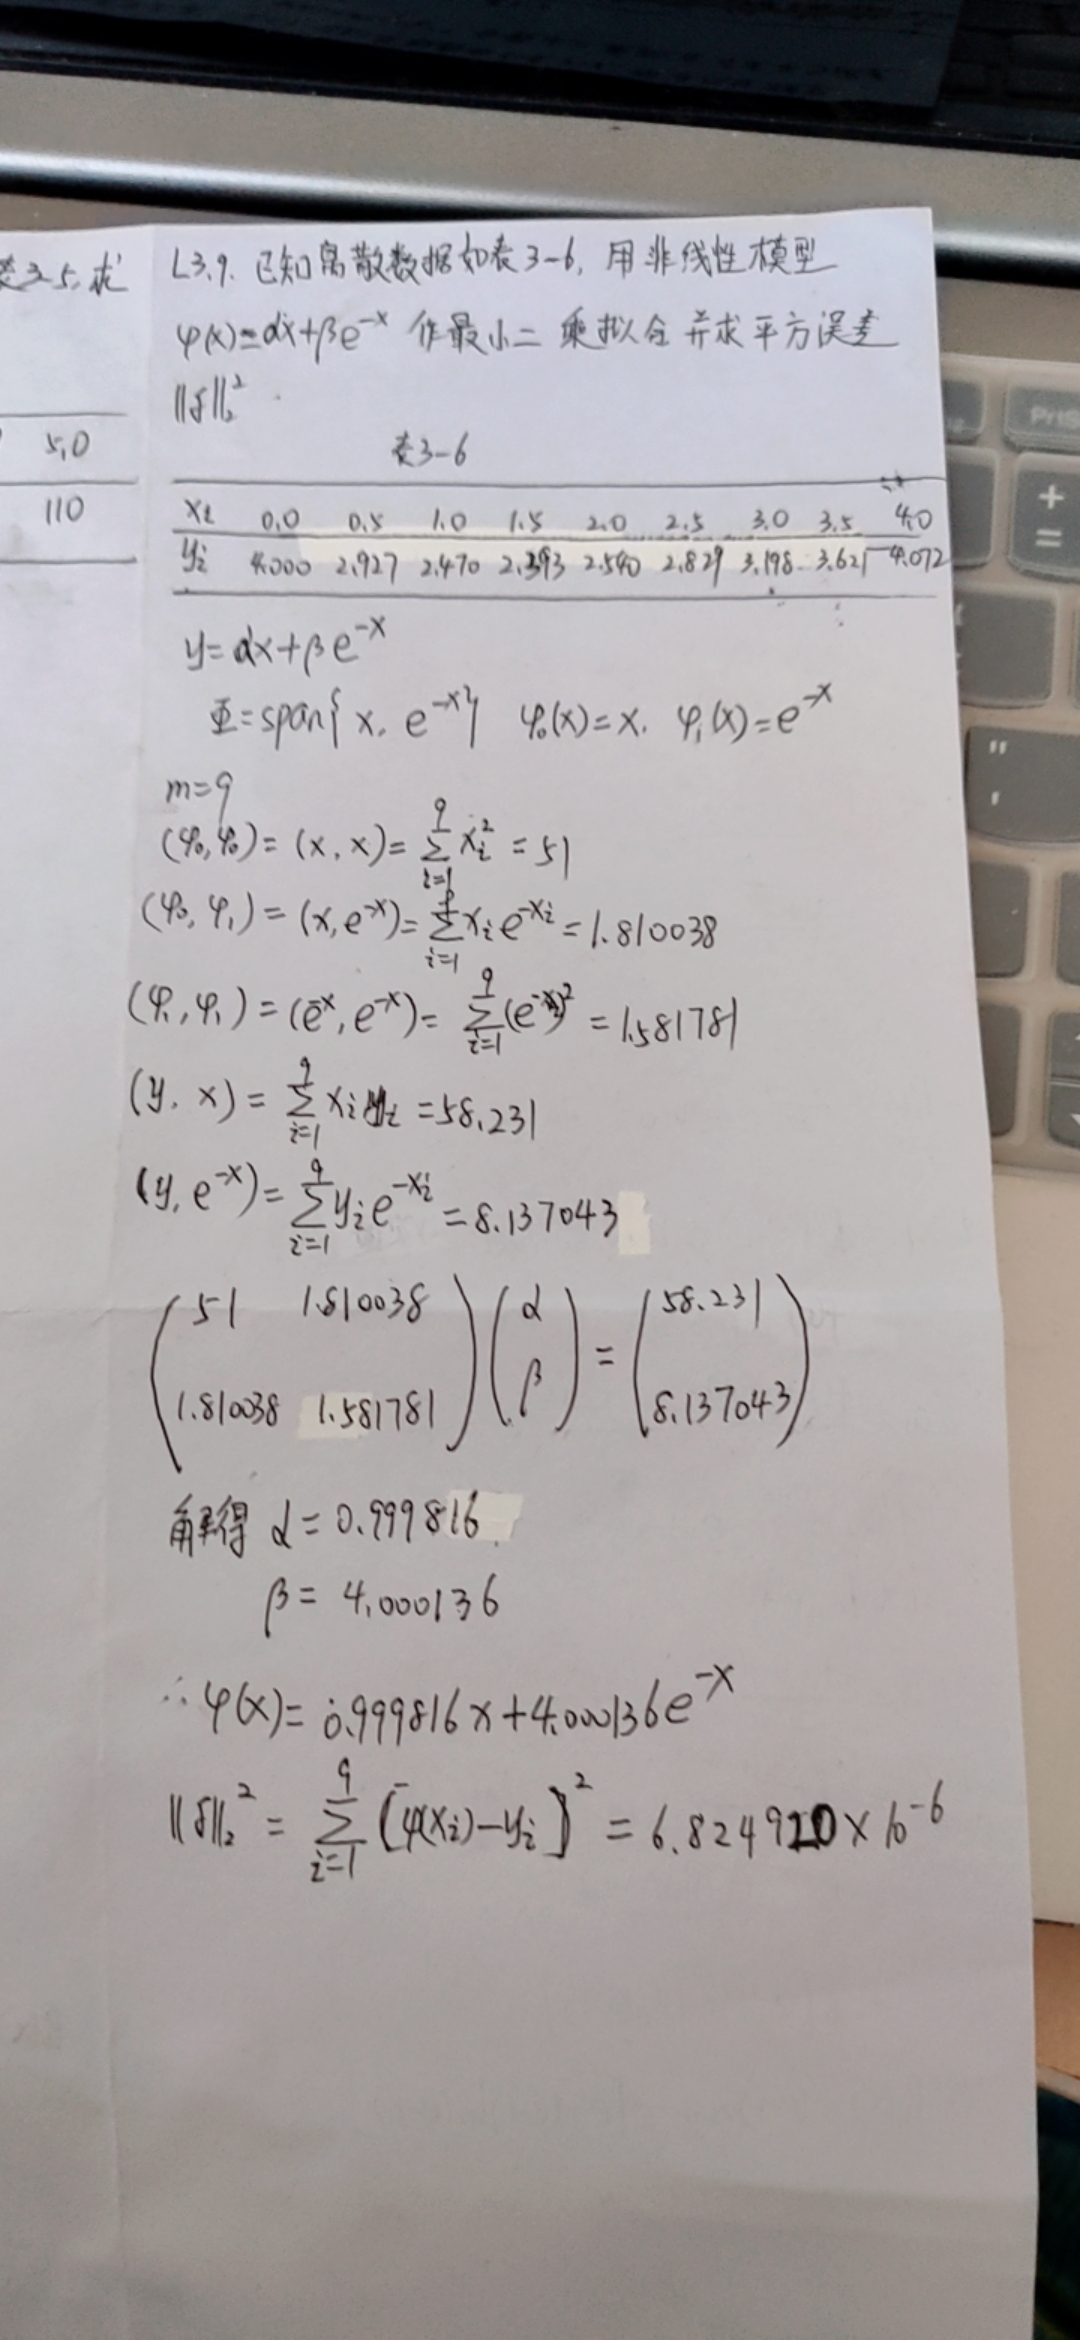 表3-5,求
5.0
110
L3.9. 已知离散数据如表3-6, 用非线性模型
φ(x)=αx+βe^{-x} 作最小二乘拟合并求平方误差
||δ||₂²
表3-6
xi 0.0 0.5 1.0 1.5 2.0 2.5 3.0 3.5 4.0
yi 4.000 2.927 2.470 2.393 2.540 2.829 3.198 3.621 4.072
y=αx+βe^{-x}
Φ=span{x, e^{-x}} φ₀(x)=x. φ₁(x)=e^{-x}
m=9
(φ₀,φ₀)=(x,x)=∑_{i=1}^{9} xi²=51
(φ₀,φ₁)=(x,e^{-x})=∑_{i=1}^{9} xi e^{-xi}=1.810038
(φ₁,φ₁)=(e^{-x},e^{-x})=∑_{i=1}^{9}(e^{-xi})²=1.581781
(y,x)=∑_{i=1}^{9} xi yi=58.231
(y,e^{-x})=∑_{i=1}^{9} yi e^{-xi}=8.137043
51 1.810038 α = 58.231
1.810038 1.581781 β 8.137043
解得 α=0.999816
β=4.000136
∴φ(x)=0.999816x+4.000136e^{-x}
||δ||₂²=∑_{i=1}^{9}[φ(xi)-yi]²=6.824920×10^{-6}
PrtS
+
=
"
'